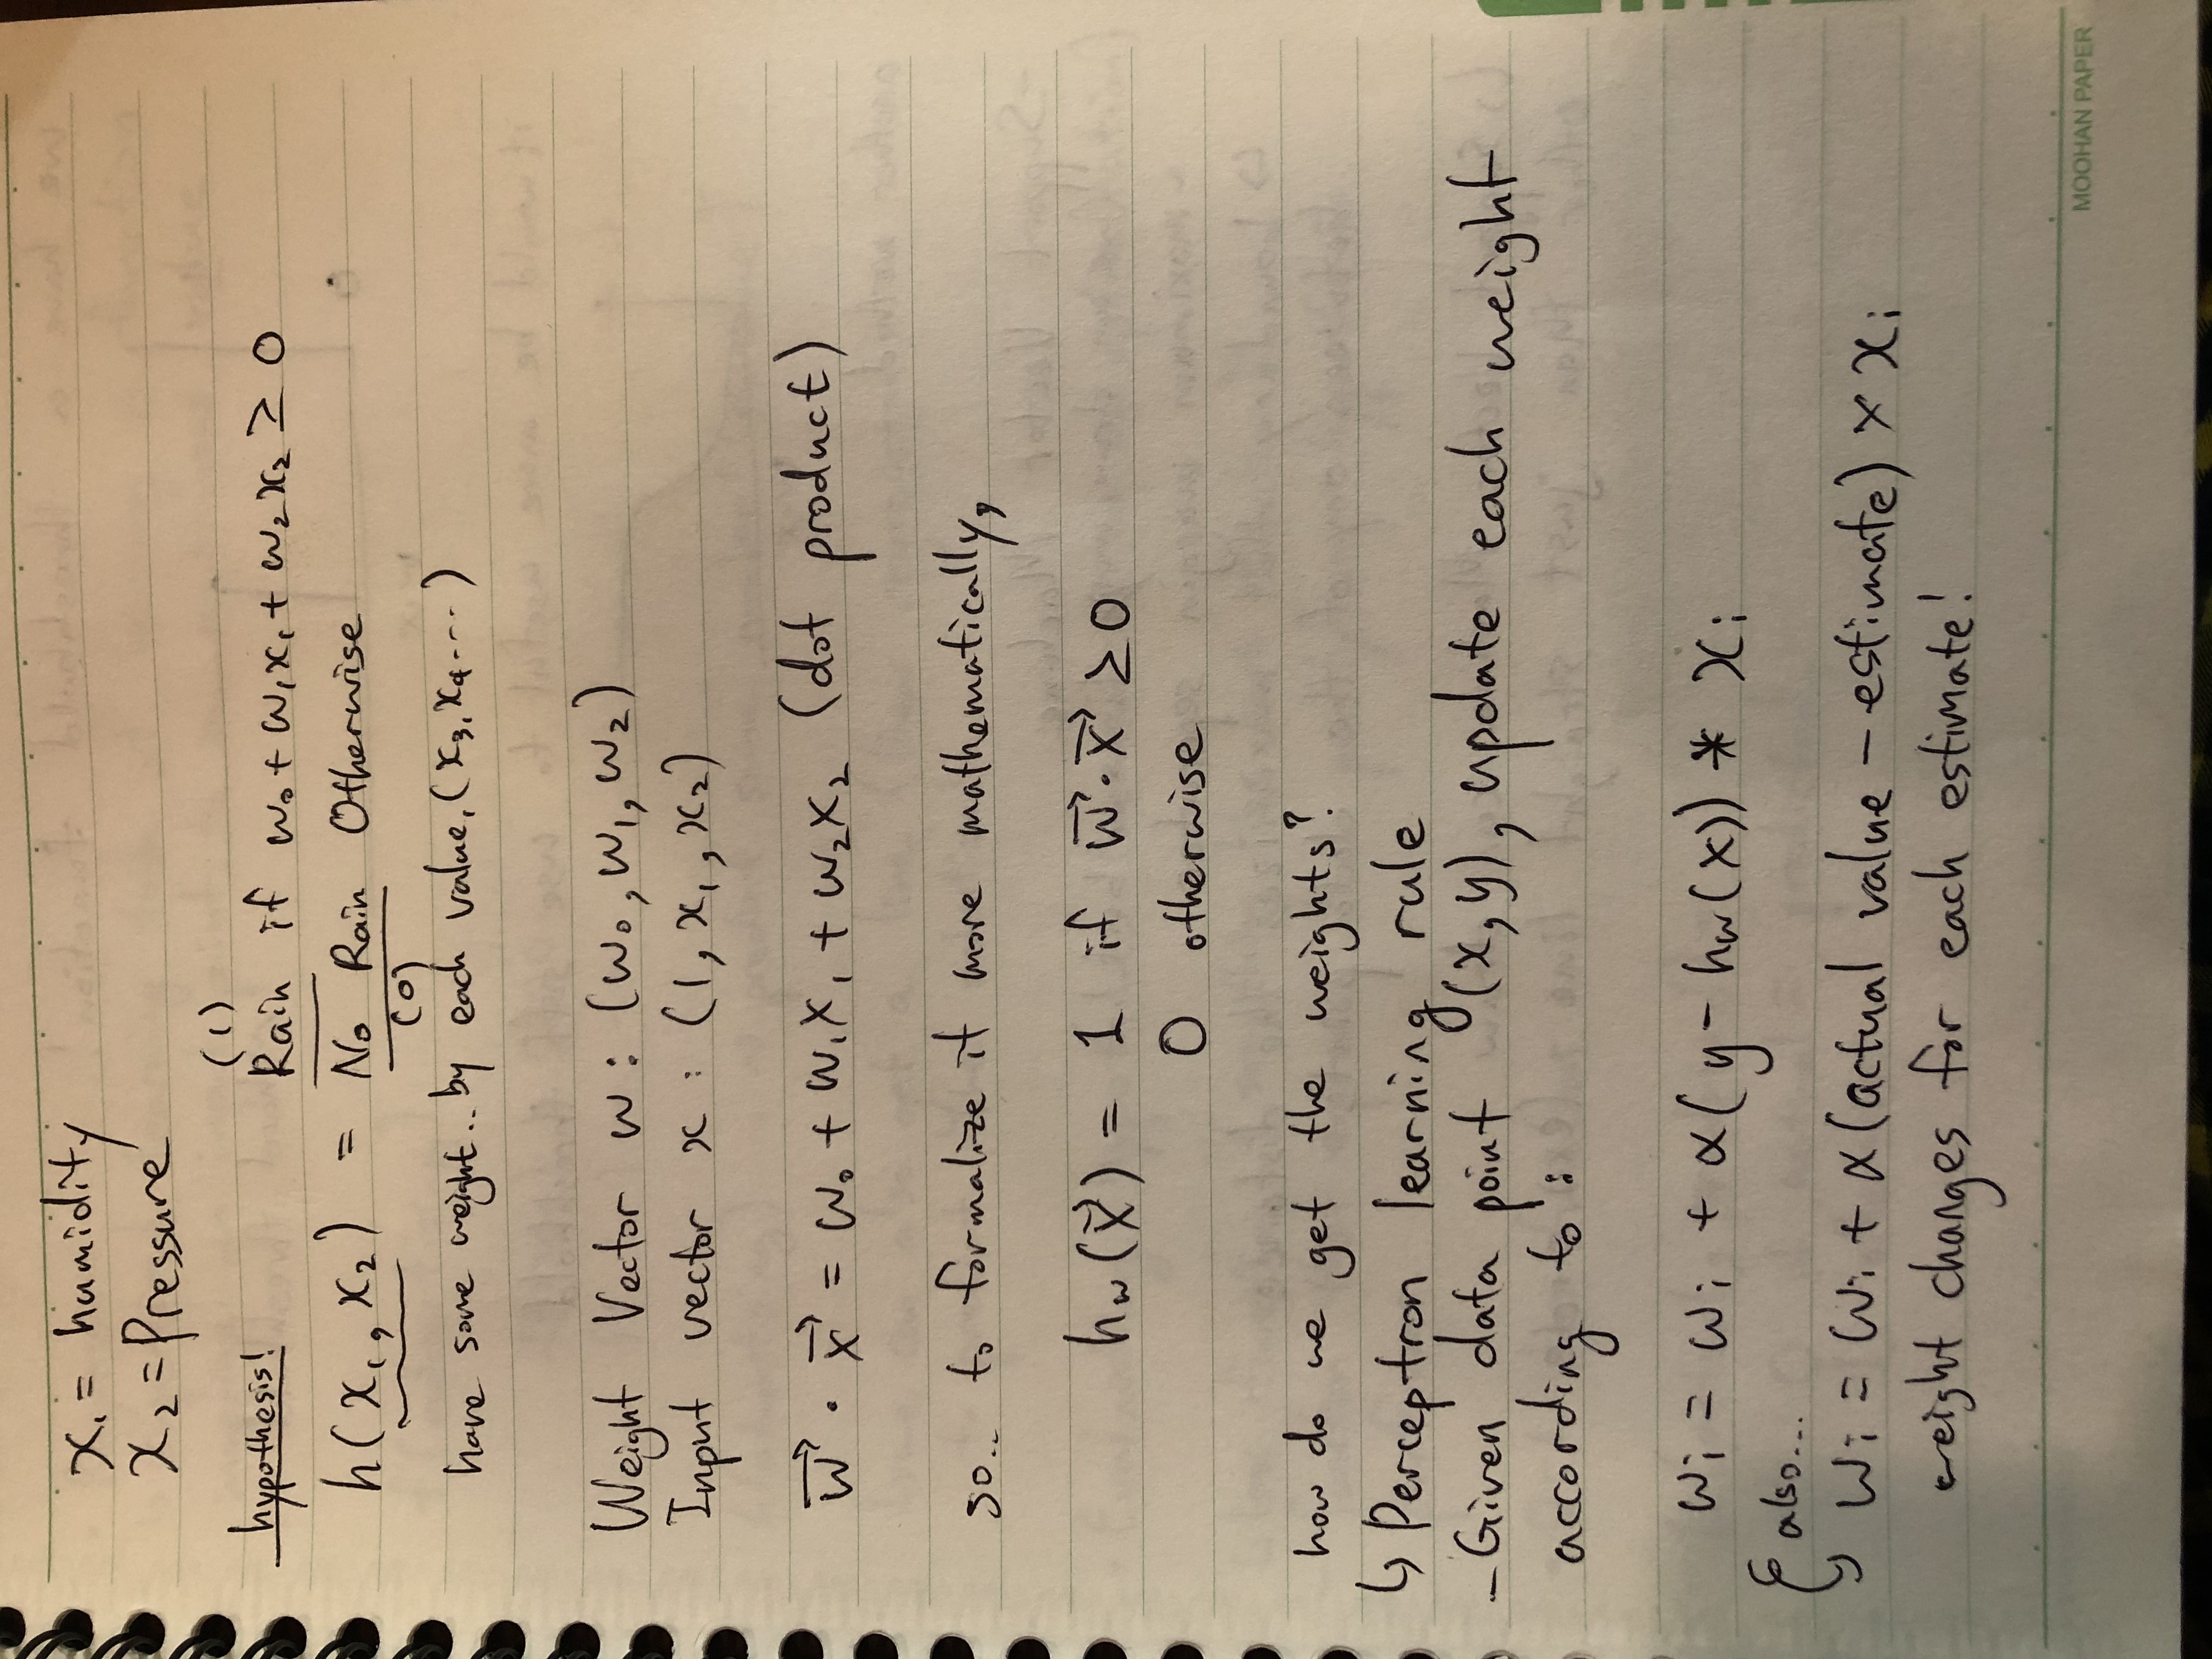 x₁ = humidity
x₂ = Pressure
(1)
hypothesis!
Rain if w₀ + w₁x₁ + w₂x₂ ≥ 0
h(x₁, x₂) = No Rain Otherwise
(0)
have some weight.. by each value, (x₃, x₄ ...)
Weight Vector w : (w₀, w₁, w₂)
Input vector x : (1, x₁, x₂)
w⃗ · x⃗ = w₀ + w₁x₁ + w₂x₂ (dot product)
so.. to formalize it more mathematically,
h_w(x⃗) = 1 if w⃗·x⃗ ≥ 0
0 otherwise
how do we get the weights?
↳ Perceptron learning rule
- Given data point (x, y), update each weight
according to :
wᵢ = wᵢ + α(y - h_w(x)) * xᵢ
also...
wᵢ = wᵢ + α(actual value - estimate) × xᵢ
weight changes for each estimate!
MOOHAN PAPER